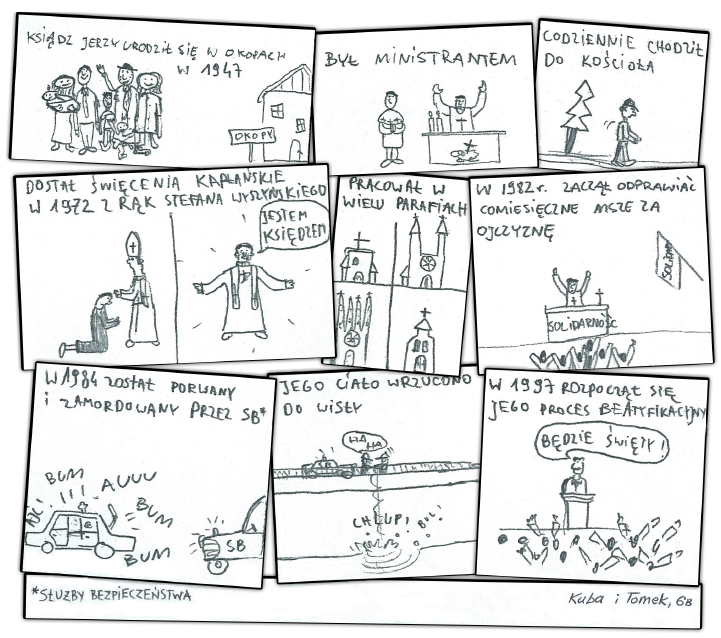 KSIĄDZ JERZY URODZIŁ SIĘ W OKOPACH
W 1947
OKOPY
BYŁ MINISTRANTEM
CODZIENNIE CHODZIŁ
DO KOŚCIOŁA
DOSTAŁ ŚWIĘCENIA KAPŁAŃSKIE
W 1972 Z RĄK STEFANA WYSZYŃSKIEGO
JESTEM
KSIĘDZEM
PRACOWAŁ W
WIELU PARAFIACH
W 1982 r. ZACZĄŁ ODPRAWIAĆ
COMIESIĘCZNE MSZE ZA
OJCZYZNĘ
SOLIDARNOŚĆ
W 1984 ZOSTAŁ PORWANY
I ZAMORDOWANY PRZEZ SB*
BUM
AUUU
BUM
BUM
SB
JEGO CIAŁO WRZUCONO
DO WISŁY
HA
HA
CHLUP!
BUL!
W 1997 ROZPOCZĄŁ SIĘ
JEGO PROCES BEATYFIKACYJNY
BĘDZIE ŚWIĘTY!
*SŁUŻBY BEZPIECZEŃSTWA
Kuba i Tomek, 6B